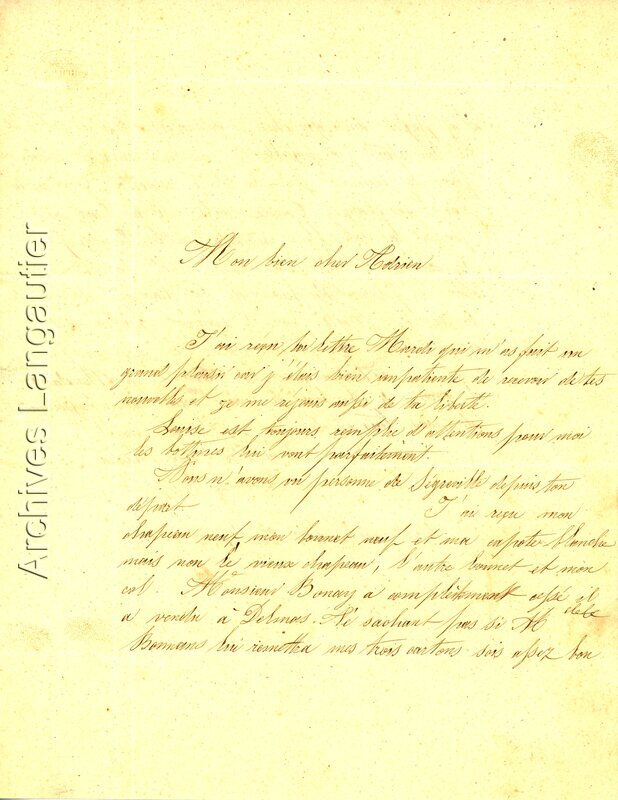 Archives Langautier
Mon bien cher Adrien
J'ai reçu ta lettre Mardi qui m'as fait un
grand plaisir car j'étais bien impatiente de recevoir de tes
nouvelles et je me rejouis aussi de ta liberté.
Louise est toujours remplie d'attentions pour moi
les bottines lui vont parfaitement.
Nous n'avons vu personne de Ségreville depuis ton
départ J'ai reçu mon
chapeau neuf mon bonnet neuf et ma capote blanche
mais non le vieux chapeau, l'autre bonnet et mon
col. Monsieur a complètement cessé il
a vendu à Delmas. Ne sachant pas si M
lui remettra mes trois cartons sois assez bon